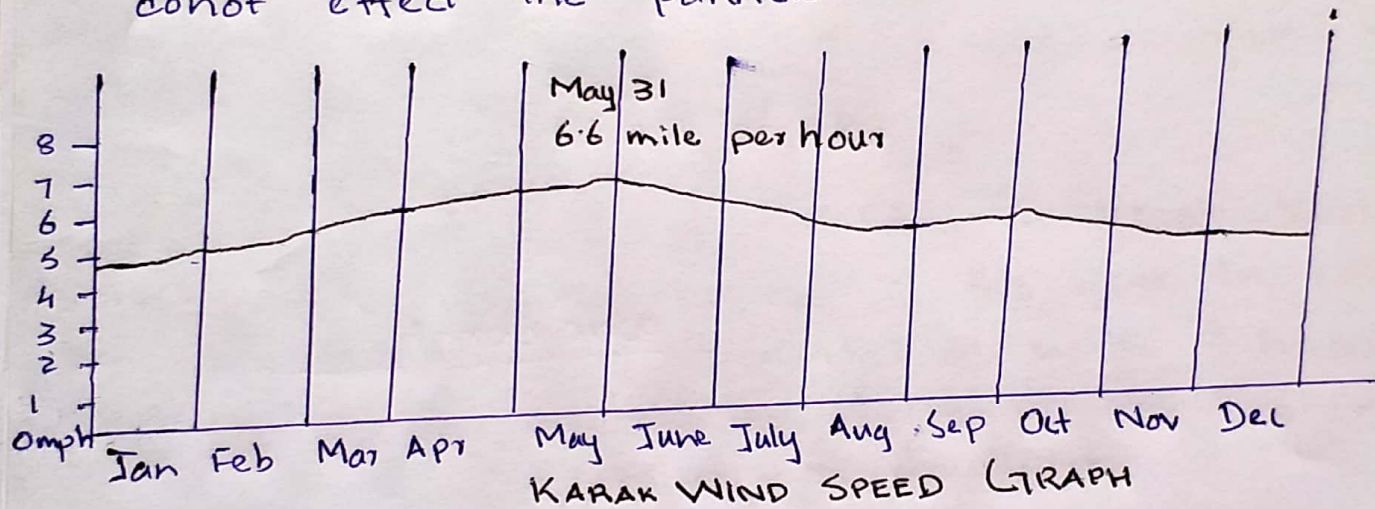 effect the
May 31
6.6 mile per hour
8
7
6
5
4
3
2
1
0mph
Jan Feb Mar Apr May June July Aug Sep Oct Nov Dec
KARAK WIND SPEED GRAPH